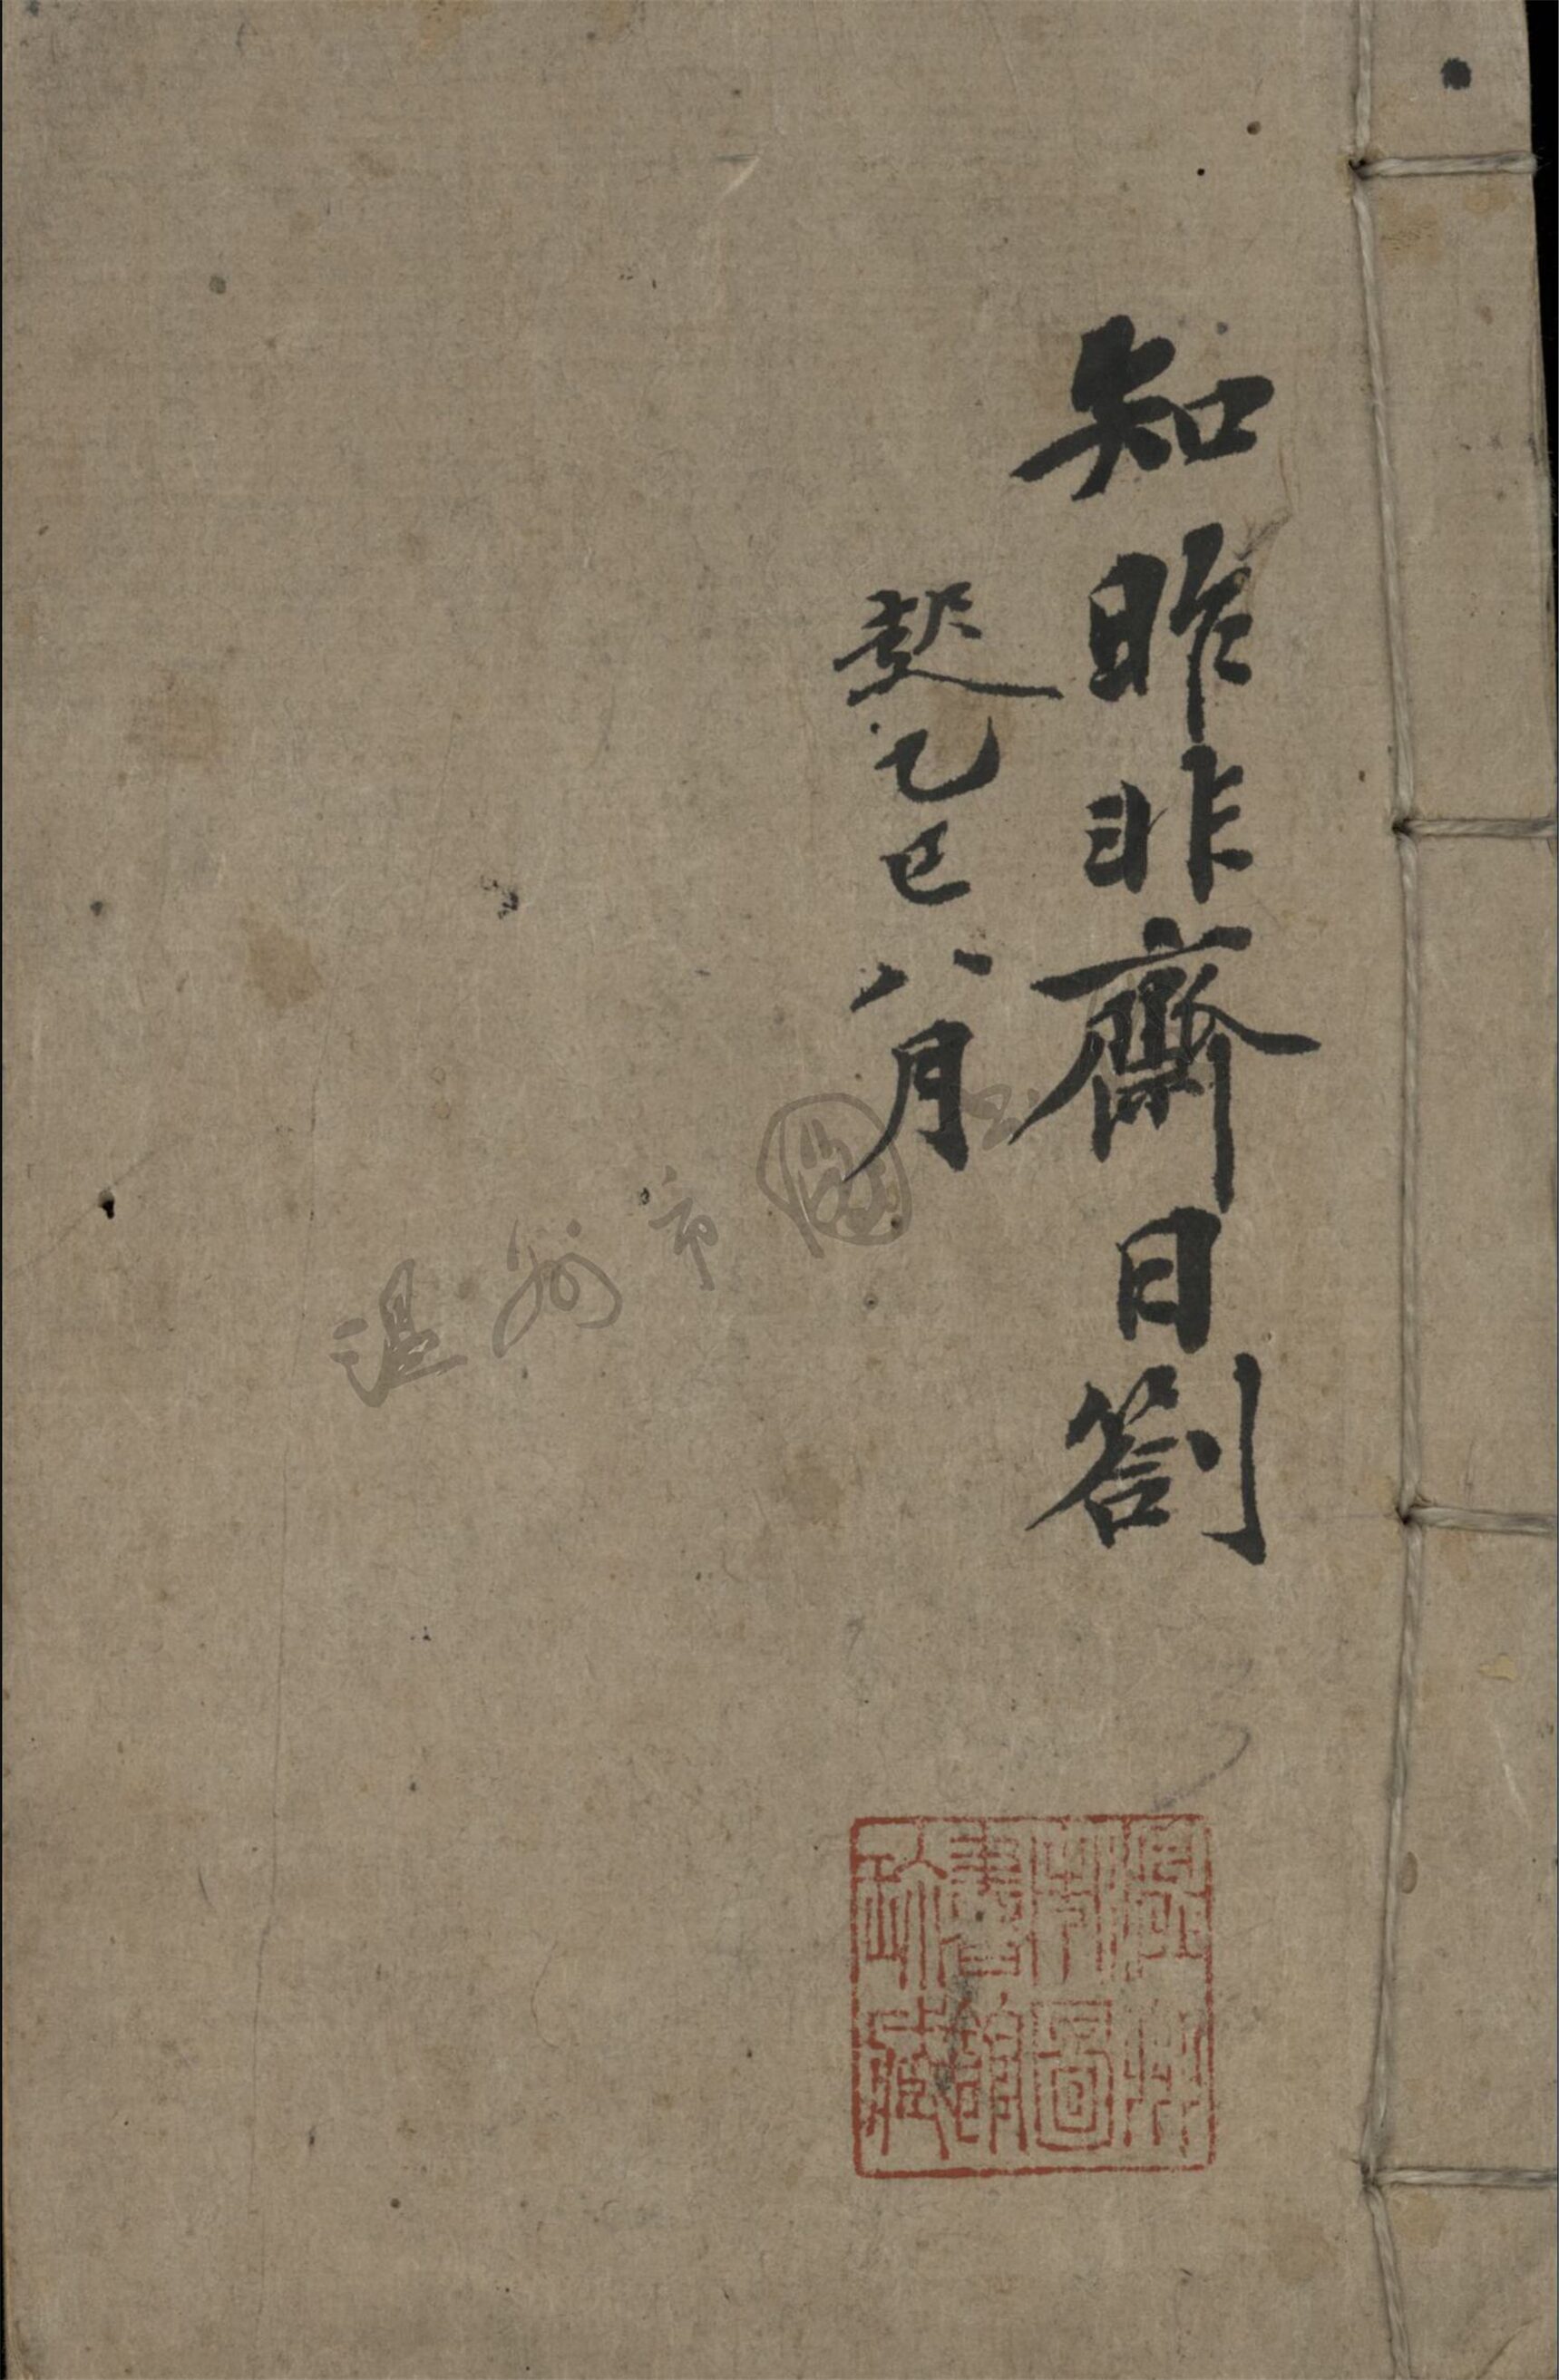 知昨非齋日劄
起乙巳八月
温州市图
溫州
市圖
書館
珍藏